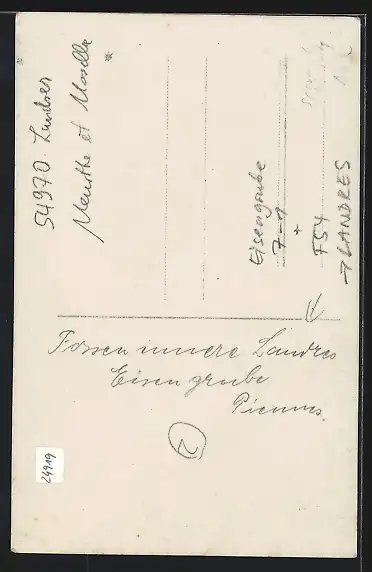 54970 Landres
Meurthe et Moselle
*
Eisengrube
7-9
+
F54
→ LANDRES
innere Landres
Eisengrube
Piennes.
2
24919